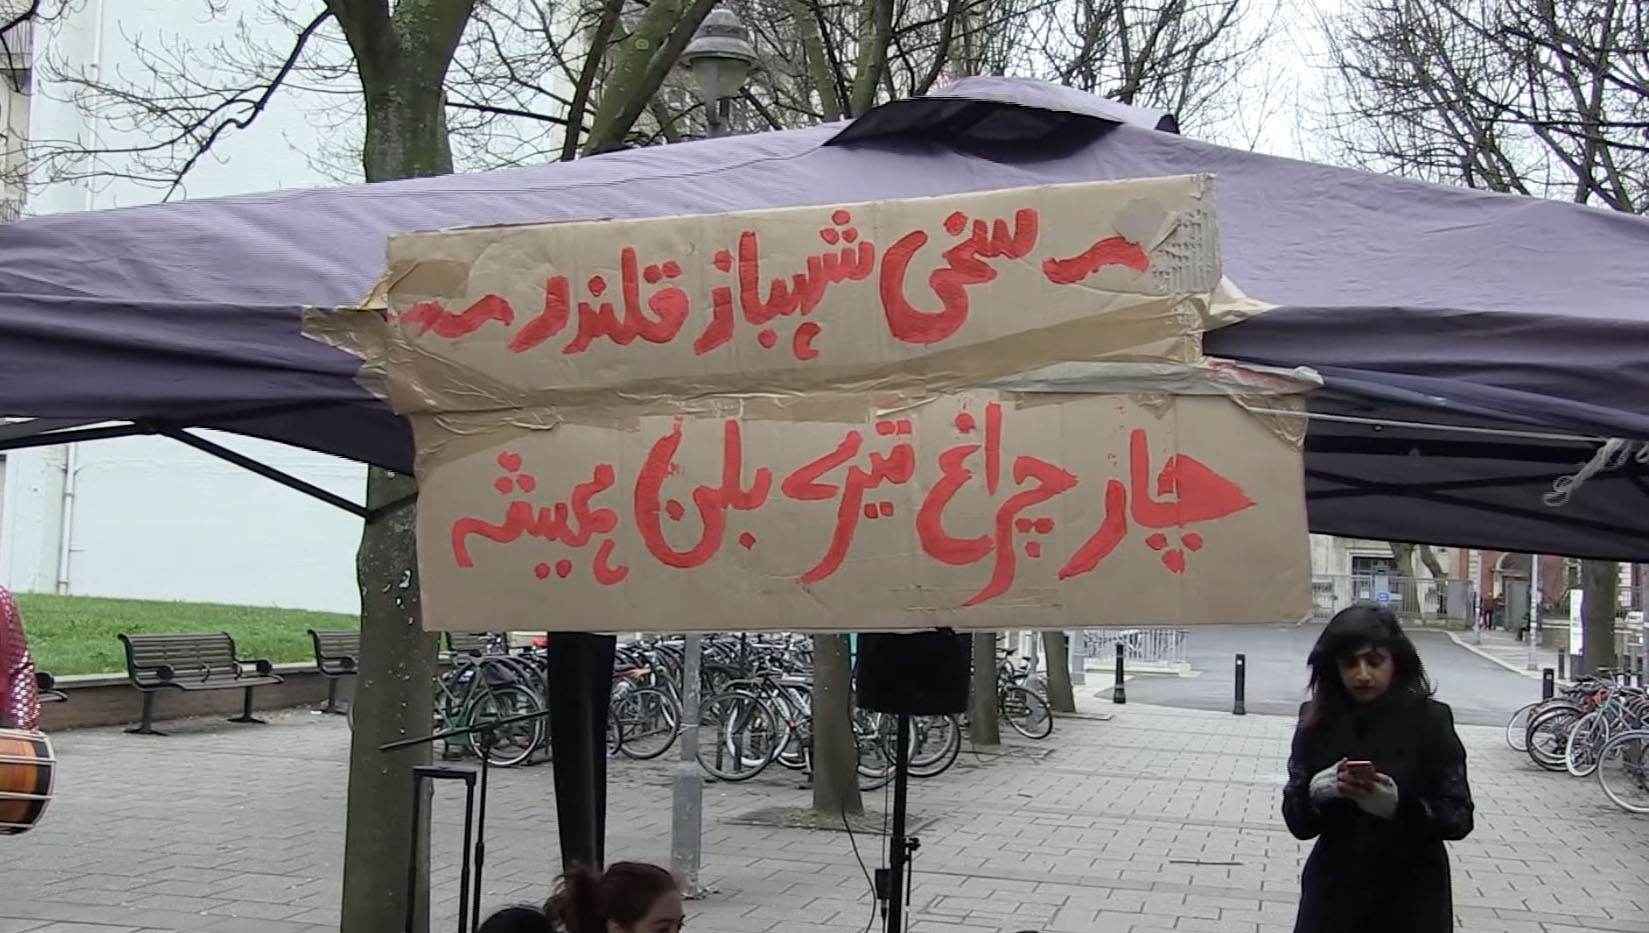 سخی شہباز قلندر
چار چراغ تیرے بلن ہمیشہ